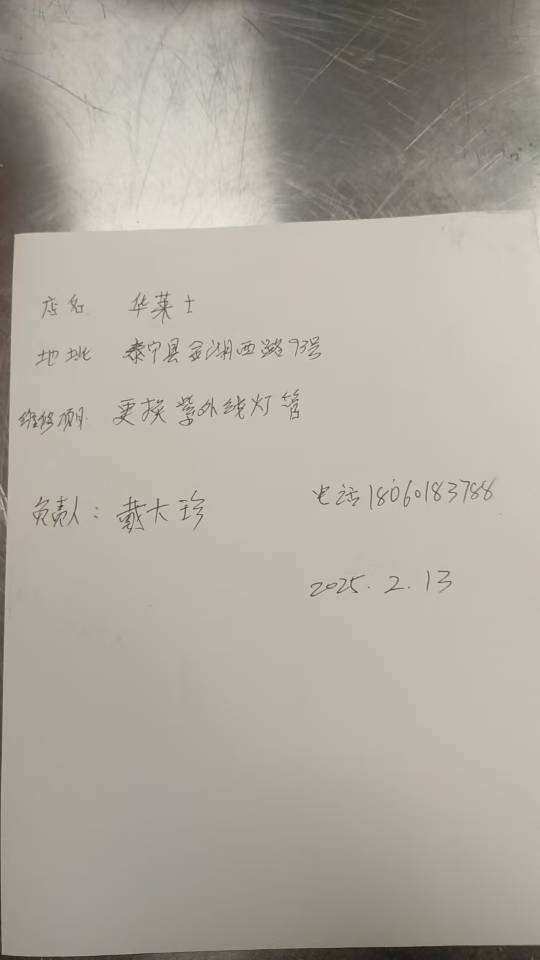 店名 华莱士
地址 泰宁县金湖西路93号
维修项目: 更换紫外线灯管
负责人: 戴大珍 电话18060183788
2025.2.13